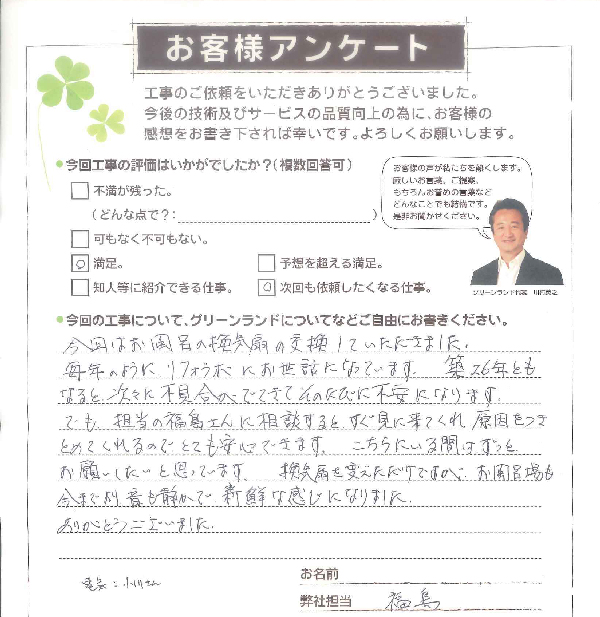 お客様アンケート
工事のご依頼をいただきありがとうございました。
今後の技術及びサービスの品質向上の為に、お客様の
感想をお書き下されば幸いです。よろしくお願いします。
●今回工事の評価はいかがでしたか?(複数回答可)
不満が残った。
(どんな点で?: )
可もなく不可もない。
満足。
予想を超える満足。
知人等に紹介できる仕事。
次回も依頼したくなる仕事。
お客様の声が私たちを動くします。
厳しいお言葉、ご提案、
もちろんお誉めの言葉など
どんなことでも結構です。
是非お聞かせください。
グリーンランド代表
●今回の工事について、グリーンランドについてなどご自由にお書きください。
今回はお風呂の換気扇の交換していただきました。
毎年のようにリフォームにお世話になっています。 築26年とも
なると次々に不具合がでてきてそのたびに不安になります。
でも、担当の福島さんに相談するとすぐ見に来てくれ原因をつき
とめてくれるのでとても安心できます。 こちらにいる間はずっと
お願いしたいと思っています。 換気扇を変えただけですが、お風呂場も
今までより音も静かで新鮮な感じになりました。
ありがとうございました。
お名前
弊社担当 福島